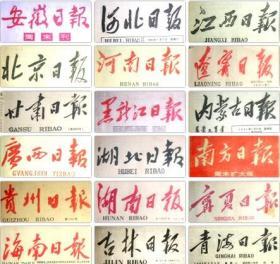 安徽日報
周末刊
河北日報
HEBEI RIBAO
江西日報
JIANGXI RIBAO
北京日報
河南日報
HENAN RIBAO
遼寧日報
LIAONING RIBAO
甘肅日報
GANSU RIBAO
黑龍江日報
內蒙古日報
廣西日報
GVANGJSIH YIZBAO
湖北日報
HUBEI RIBAO
南方日報
周末扩大版
貴州日報
GUIZHOU RIBAO
湖南日報
HUNAN RIBAO
寧夏日報
NINGXIA RIBAO
海南日報
HAINAN RIBAO
吉林日報
JILIN RIBAO
青海日報
QINGHAI RIBAO